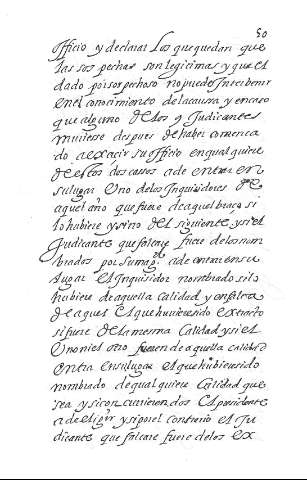 50
officio y declarar Los que quedan que
las sospechas son legitimas y que el
dado por sospechoso no puede Intrebenir
en el conocimiento de la causa y en caso
que alguno de los Judicantes
muriesse despues de haber comenca
do a exercir su officio en qualquiere
de estos dos cassos a de entrar en
su lugar Uno de los Inquisidores de
aquel año que fuere de aquel braço si
lo hubiere y sino del siguiente y si el
Judicante que faltare fuere de los nom
brados por su mag.d a de entrar en su
lugar el Inquisidor nombrado si lo
hubiere de aquella calidad y en falta
de aquel el que hubiere sido extracto
si fuere de la mesma calidad y si el
Uno ni el otro fueren de aquella calidad
entra en su lugar el que hubiere sido
nombrado de qualquiere calidad que
sea y si concurrieren dos el presidente
a de eligir y si por el contrario el Ju
dicante que faltare fuere de los ex